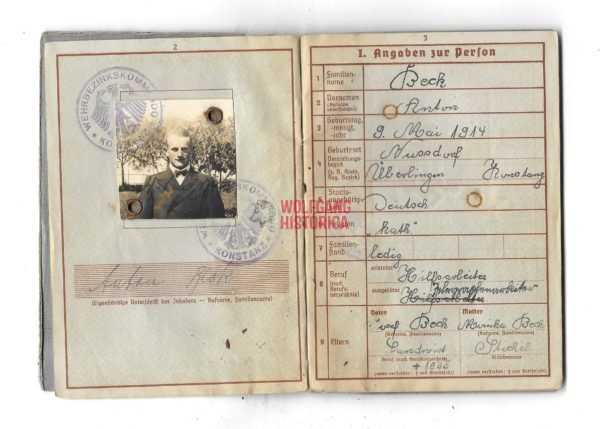 2
WEHRBEZIRKSKOMMANDO
KONSTANZ
WOLFGANG
HISTORICA
Anton Beck
(Eigenhändige Unterschrift des Inhabers — Rufname, Familienname)
3
I. Angaben zur Person
1 Familien-name Beck
2 Vornamen Anton
3 Geburtstag, -monat, -jahr 9. Mai 1914
4 Geburtsort Nussdorf
Verwaltungs-bezirk Überlingen Konstanz
5 Staats-angehörig- Deutsch
"kath"
7 Familien-stand ledig
8 Beruf (nach Berufs-verzeichnis) erlernter Hilfsarbeiter
ausgeübter Hilfsarbeiter
Vater Mutter
Beck Monika Beck
(Rufname, Familienname) (Rufname, Familienname)
9 Eltern Landwirt Stickel
Beruf (nach Berufsverzeichnis) Mädchenname
(wenn verstorben: † und Sterbejahr) (wenn verstorben: † und Sterbejahr)